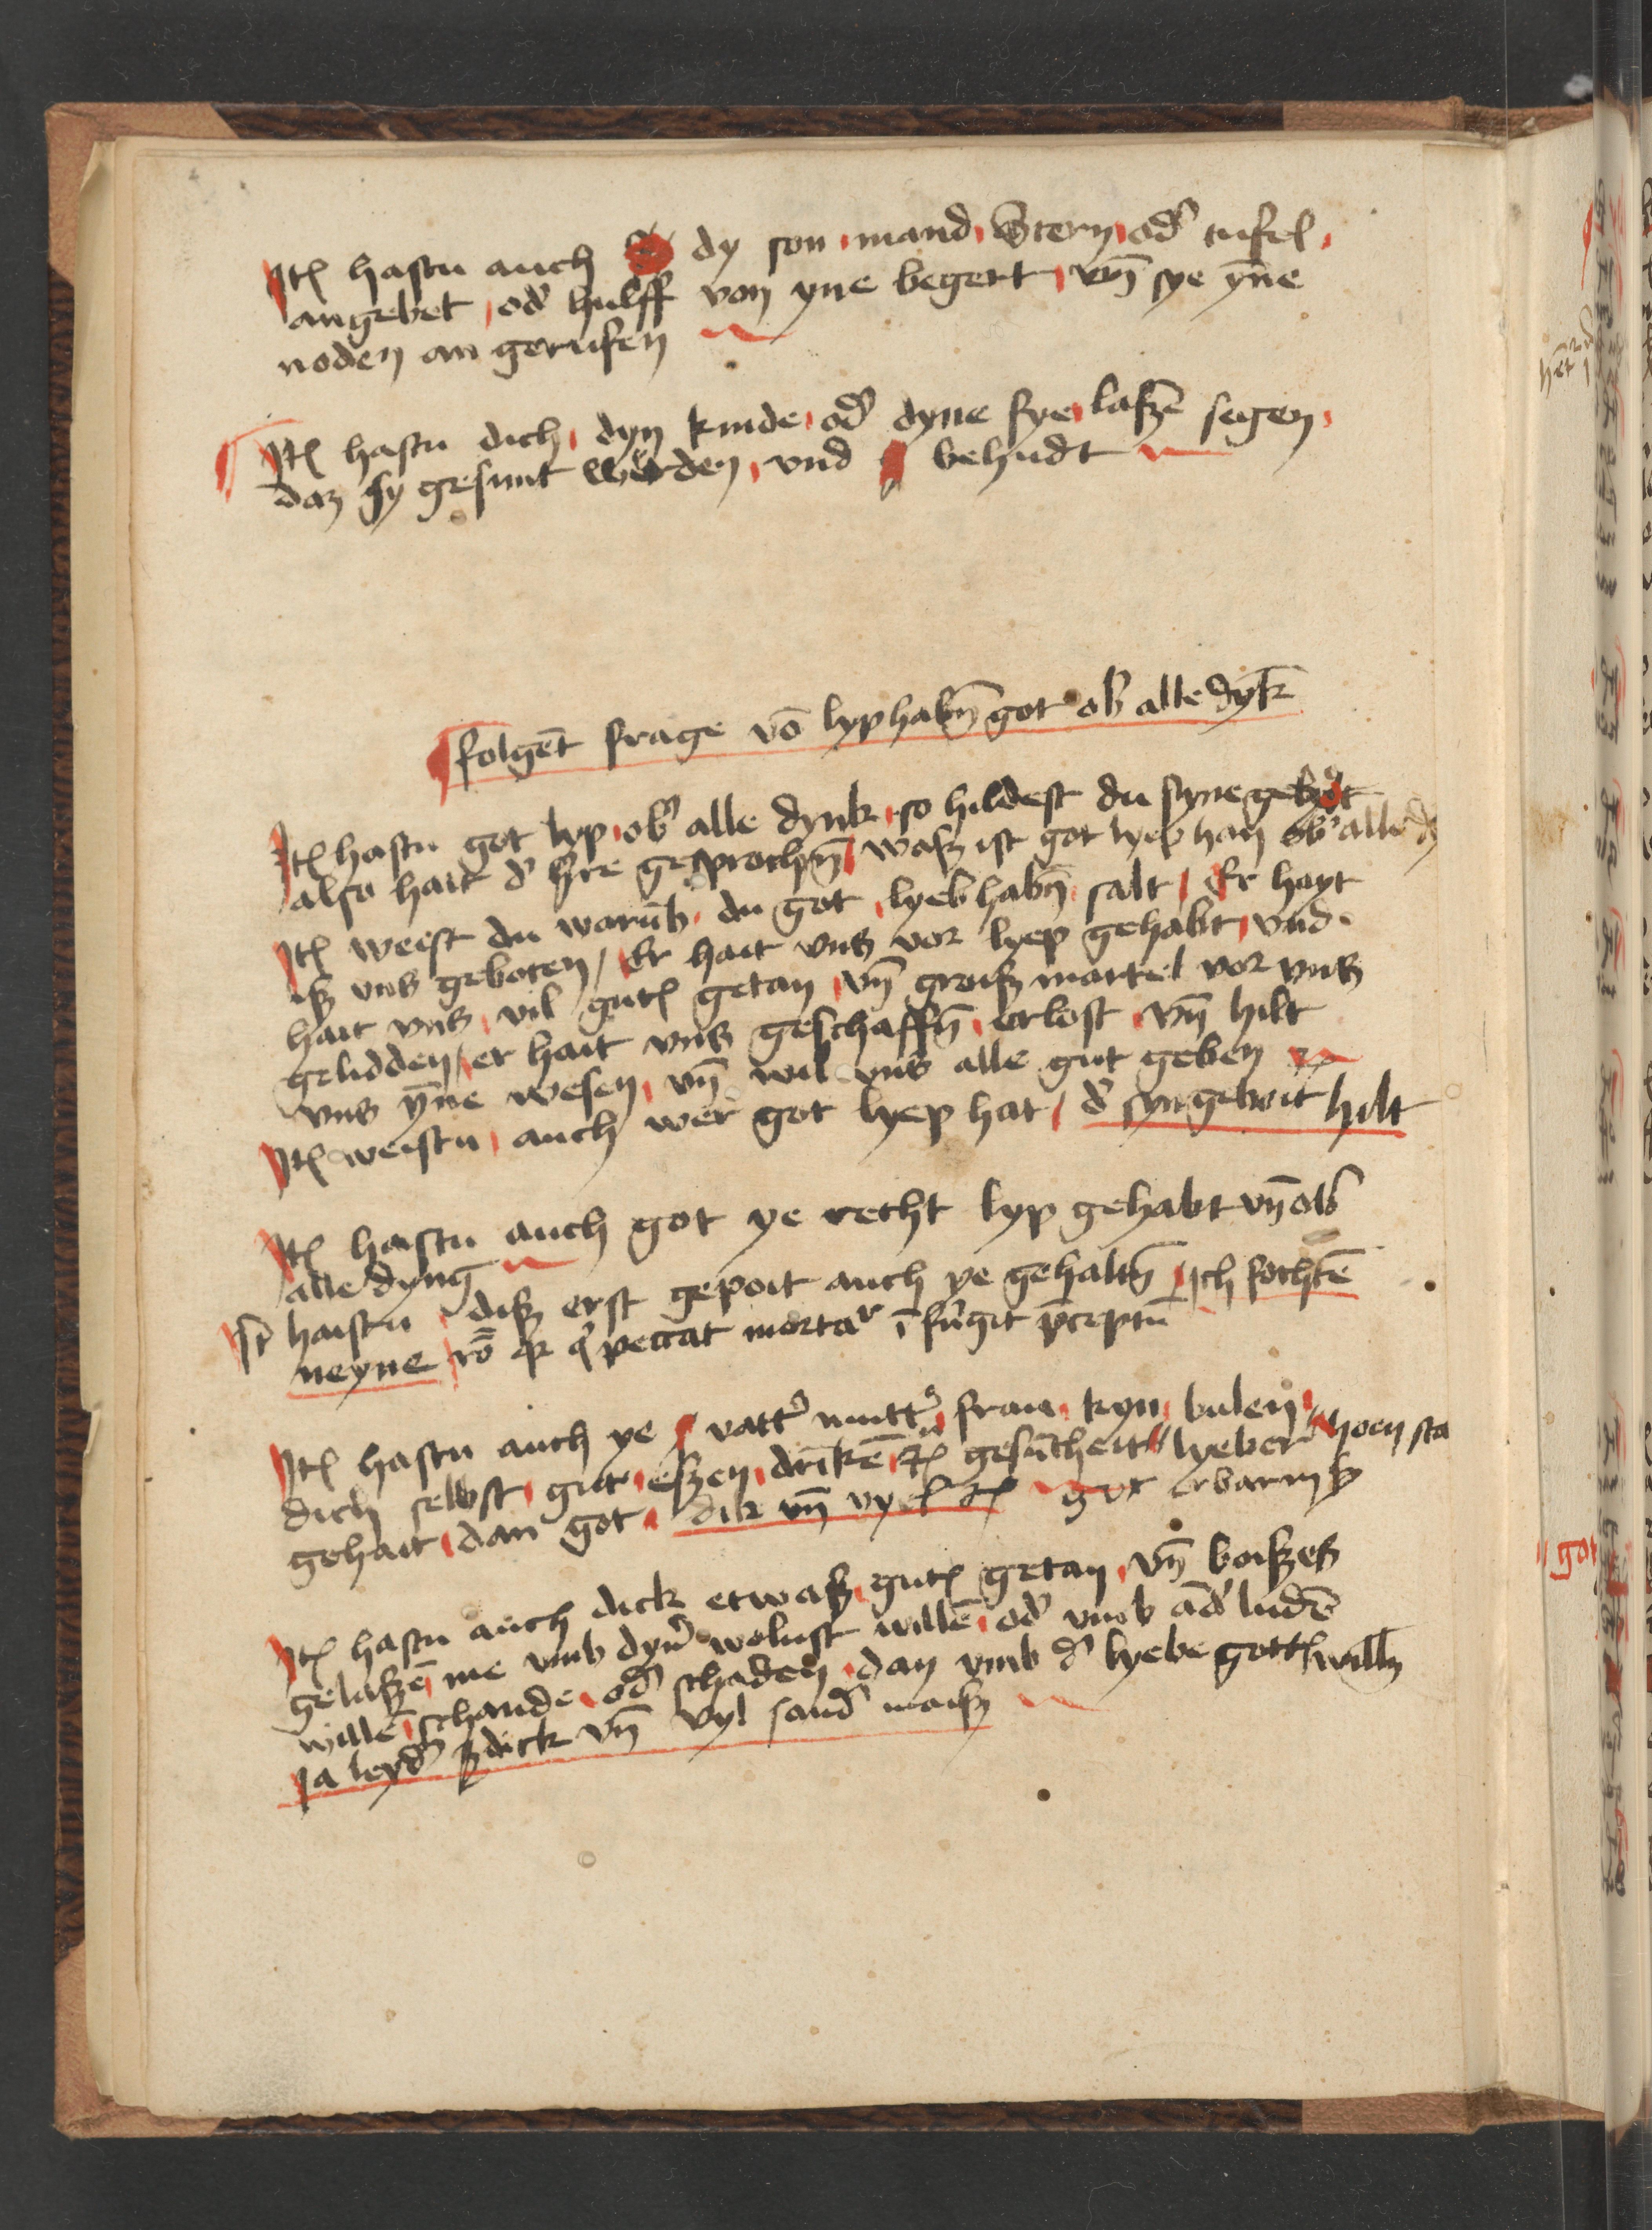 Itē hastu auch dy son mand Stern od' tufel
angebet od' hulff von yne begert vn̄ sye yn̄e
noden an gerufen
Itē hastu dich dyn kinde od' dyne fye laßē segen
daz sy gesunt werden vnd behudt
folgēt frage vō lyphabn̄ got ob' alle dyk̄
Itē hastu got lyp ob' alle dynk so hildest du syne gebot
also hait d' h're gesprochn̄ waß ist got lyeb han ob' alle dy
Itē weist du warūb du got lyeb habn̄ salt Er hayt
iß vns geboten Er hait vns vor lyep gehabt vnd
hait vns vil gutē getan vn̄ groiß martel vor vns
gelidden er hait vns geschaffn̄ erlost vn̄ hilt
vns yn̄e wesen vn̄ wil vns alle gut geben
Itē weistu auch wer got lyep hat d' syn geboit hilt
Itē hastu auch got ye recht lyp gehabt vn̄ ob'
alle dyng
It̄ haistu diß erst gepoit auch ye gehaltn̄ Ich fochtē
neyne rō peccat morta' īfrīgit p̄ceptū
Itē hastu auch ye vatt' mutt' frau kyn bulen
dich selbst gut eßen drīkē gesūtheit lyeber hoen sta
gehait dan got dik vn̄ vyel got erbarm ß
Itē hastu auch dick etwaß gutē getan vn̄ boißes
gelaßē me vmb dyn' wolust willē od' vmb ād' ludē
willē schande od' schaden dan vmb d' lyebe gottē willn̄
Ja leyd' dick vn̄ vyl sand' maiß
got